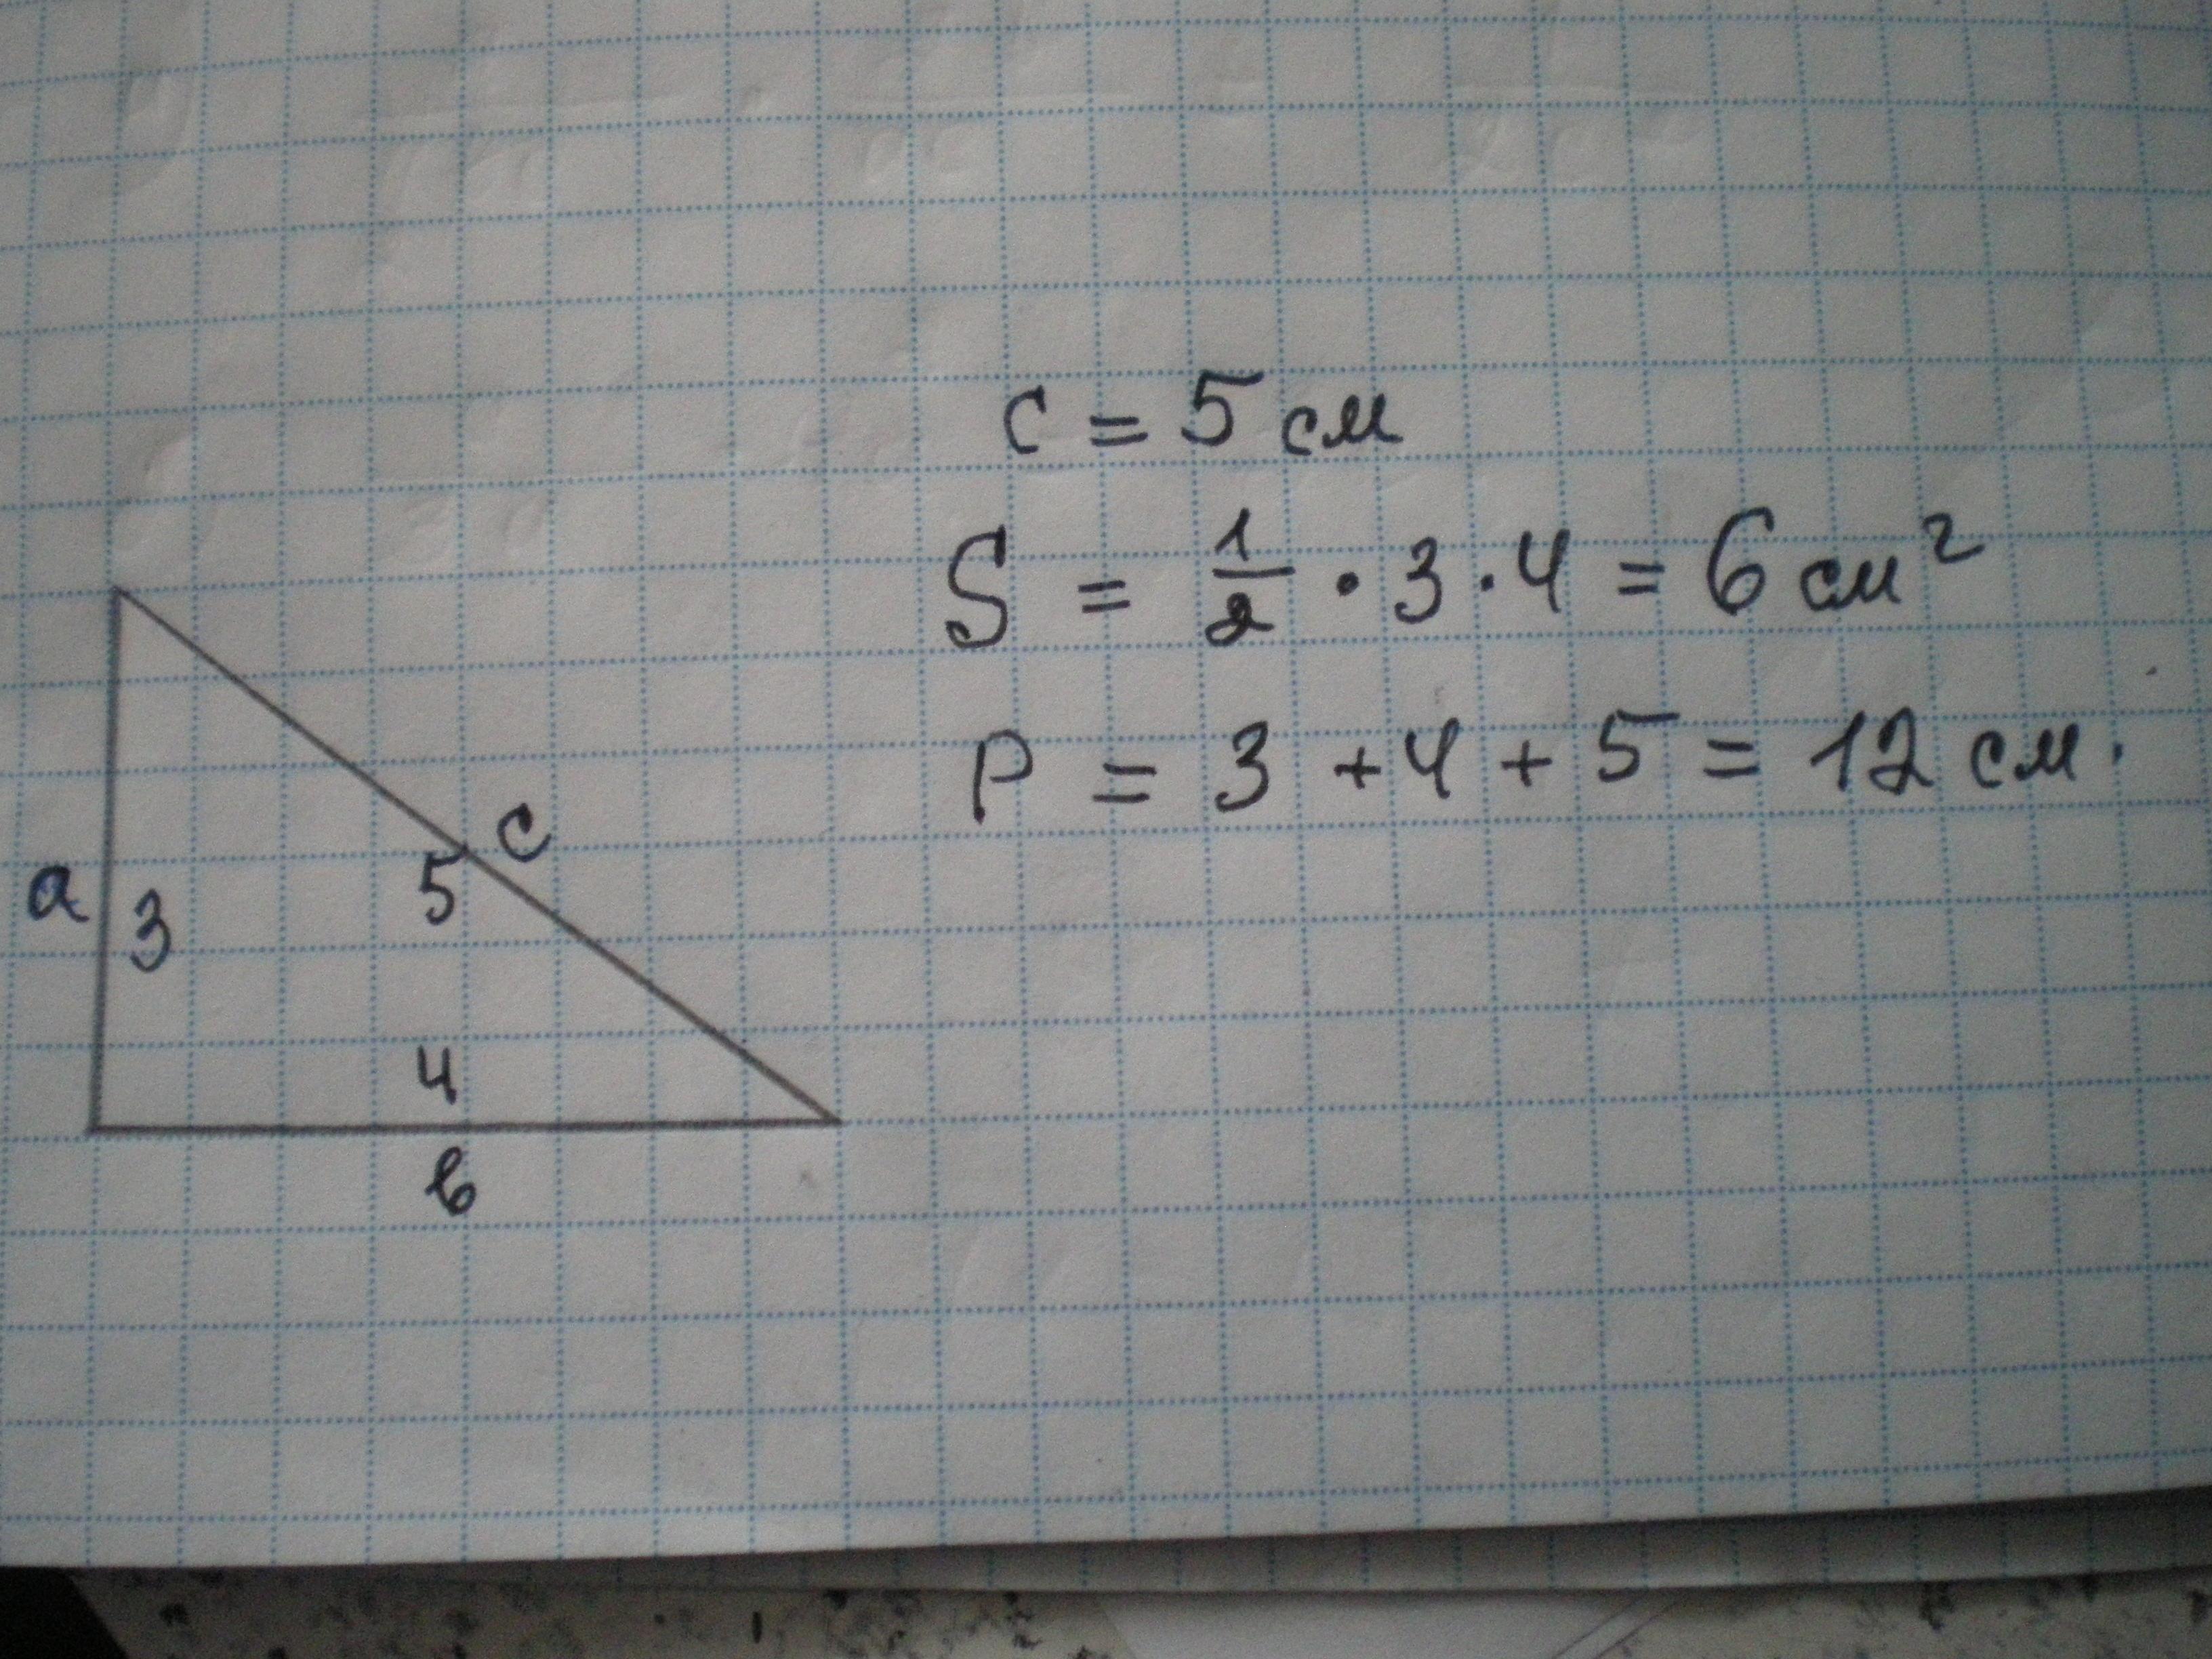 c = 5 см
S = 1/2 · 3 · 4 = 6 см²
P = 3 + 4 + 5 = 12 см.
c
5
a 3
4
в